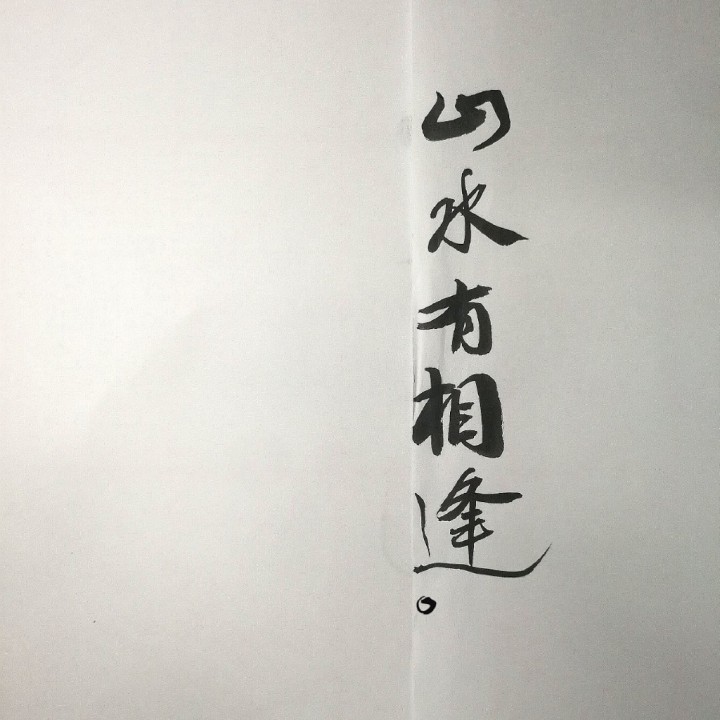 山水有相逢。